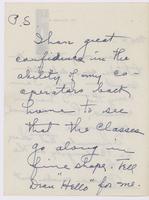 P.S
I have great
confidence in the
ability of my co-
operators back
home to see
that the classes
go along in
fine shape. Tell
"Hello" for me.